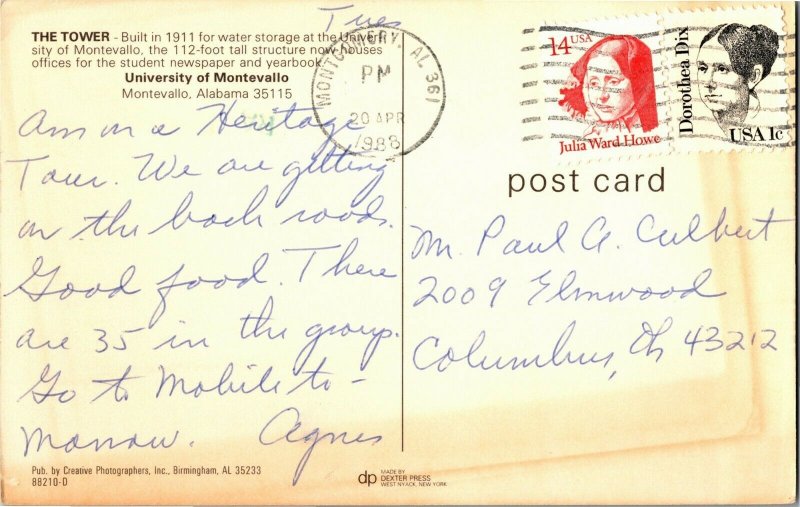 Tues
THE TOWER - Built in 1911 for water storage at the Univer-
sity of Montevallo, the 112-foot tall structure now houses
offices for the student newspaper and yearbook.
University of Montevallo
Montevallo, Alabama 35115
MONTGOMERY, AL 361
PM
20 APR
1988
14 USA
Julia Ward Howe
Dorothea Dix
USA 1c
Am on a Heritage
Tour. We are getting
on the back roads.
Good food. There
are 35 in the group.
Go to Mobile to-
morrow. Agnes
post card
Mr. Paul A. Culbert
2009 Elmwood
Columbus, Oh 43212
Pub. by Creative Photographers, Inc., Birmingham, AL 35233
88210-D
dp MADE BY
DEXTER PRESS
WEST NYACK, NEW YORK